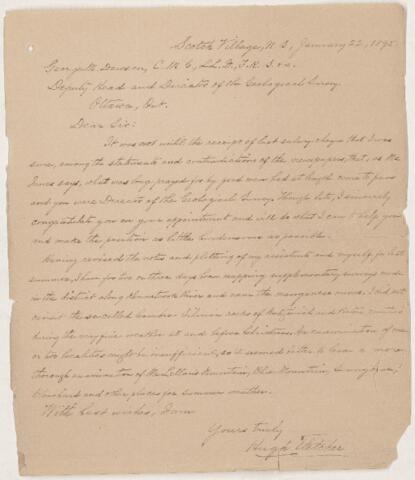 Scotch Village, N. S., January 22, 1895.
George M. Dawson, C. M. G., LL. D., F. R. S. &c.
Deputy Head and Director of the Geological Survey
Ottawa, Ont.
Dear Sir:
It was not until the receipt of last salary cheque that I was
sure, among the statements and contradictions of the newspapers, that, as the
Times says, what was long prayed for by good men had at length come to pass
and you were Director of the Geological Survey. Though late, I sincerely
congratulate you on your appointment and will do what I can to help you
and make the position as little burdensome as possible.
Having revised the notes and plotting of my assistants and myself, for last
summer, I have for two or three days been mapping supplementary surveys made
in the district along Kennetcook River and near the manganese mines. I did not
revisit the so-called Cambro-Silurian rocks of Antigonish and Pictou counties
during the weather at and before Christmas. An examination of one
or two localities might be insufficient, so it seemed better to leave a more
thorough examination of McLellans Mountain, Mountain,
and other places for summer weather.
With best wishes, I am
Yours truly
Hugh Fletcher